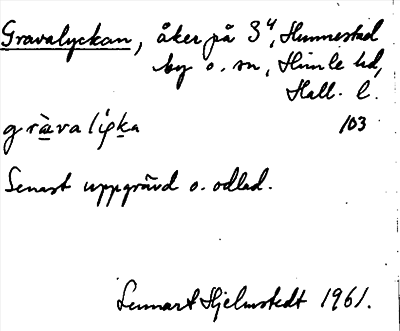 Gravalyckan, åker på 3⁴, Hunnestad
by o. sn, Himle hd,
Hall. l.
gràvalỳka 103
Senast uppgrävd o. odlad.
Lennart Hjelmstedt 1961.